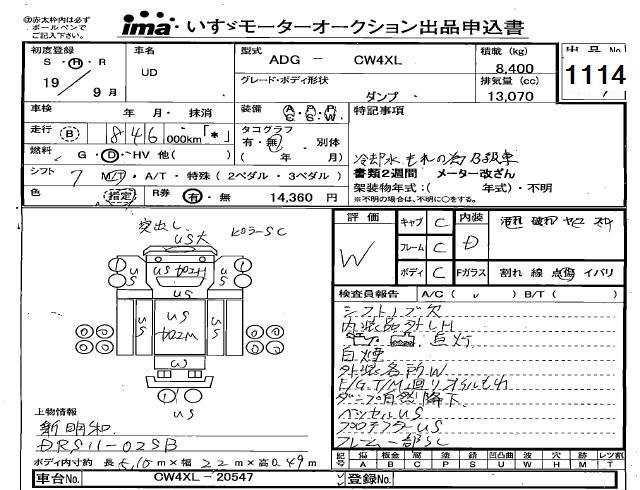 ◎赤太枠内は必ず
ボールペンで
ご記入下さい。
ima いすゞモーターオークション出品申込書
初度登録
S・H・R
19 / 9月
車名
UD
型式
ADG - CW4XL
積載 (kg)
8,400
出品No
1114
グレード・ボディ形状
ダンプ
排気量 (cc)
13,070
車検
年 月・ 抹消
装備
A/C P/S P/W
特記事項
走行 (B) 846 000km「*」
タコグラフ
有・無 別体
( 年 月)
冷却水もれの為B級車
書類2週間 メーター改ざん
架装物年式:( 年式)・不明
※不明の場合は、不明に○をする。
燃料 G・D・HV 他( )
シフト 7 M/T・A/T・特殊(2ペダル・3ペダル)
色 指定
R券 有・無 14,360 円
突出し
US大
ヒロラーSC
US
US
US
US
US
US
US
US
US
評価
W
キャブ C
フレーム C
ボディ C
内装 D
汚れ 破れ ヤニ スレ
Fガラス 割れ 線 点傷 イバリ
検査員報告 A/C ( ✓ ) B/T ( )
シフトノブ欠
内装品外しH
点灯
白煙
外装各所W
E/G,T/M廻りオイルもれ
ダンプ自然降下
ベッセルUS
プロテクターUS
フレーム一部SC
上物情報
新明和
DRS11-02SB
ボディ内寸約 長5.10m×幅2.2m×高0.49m
記号
傷 A
板金 B
腐 C
塗 P
錆 S
凹凸曲 U
波 W
穴 H
跡 M
レツ割 T
車台No. CW4XL-20547
登録No.